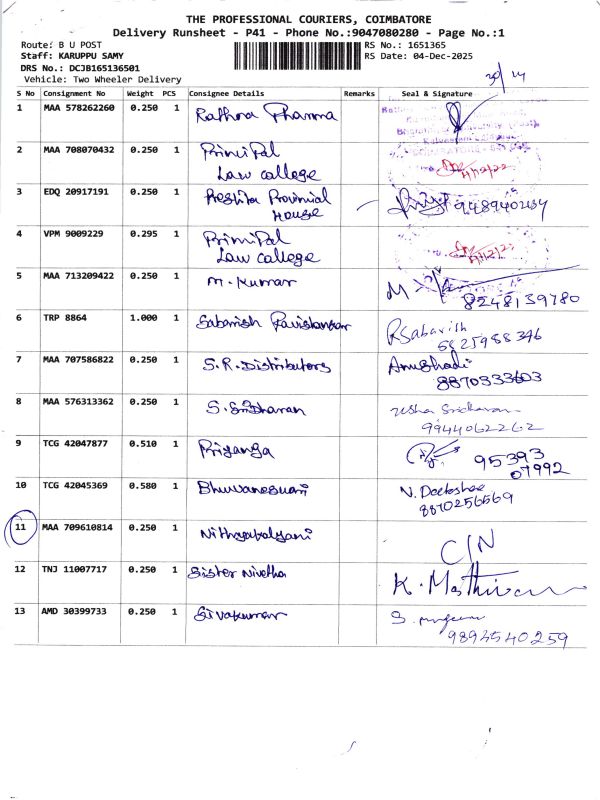 THE PROFESSIONAL COURIERS, COIMBATORE
Delivery Runsheet - P41 - Phone No.:9047080280 - Page No.:1
Route: B U POST
RS No.: 1651365
Staff: KARUPPU SAMY
RS Date: 04-Dec-2025
DRS No.: DCJB165136501
Vehicle: Two Wheeler Delivery
30/14
S No Consignment No Weight PCS Consignee Details Remarks Seal & Signature
1 MAA 578262260 0.250 1 Rathna Pharma
2 MAA 708070432 0.250 1 Principal
Law college
3 EDQ 20917191 0.250 1 Provinial
House 9489402134
4 VPM 9009229 0.295 1 Principal
Law college
5 MAA 713209422 0.250 1 M. Kumar
8248139780
6 TRP 8864 1.000 1 Sabarish Ravishankar RSabarish
5825988346
7 MAA 707586822 0.250 1 S.R. Distributors Anushadi
8870333603
8 MAA 576313362 0.250 1 S. Sridharan Usha Sridharan
9944062262
9 TCG 42047877 0.510 1 Priyanga 95393
07992
10 TCG 42045369 0.580 1 Bhuvaneswari N. Deekshee
8870256569
11 MAA 709610814 0.250 1 Nithyakalyani C/N
12 TNJ 11007717 0.250 1 Sister Nivetha K. Mathivan
13 AMD 30399733 0.250 1 Sivakumar S.
9894540259